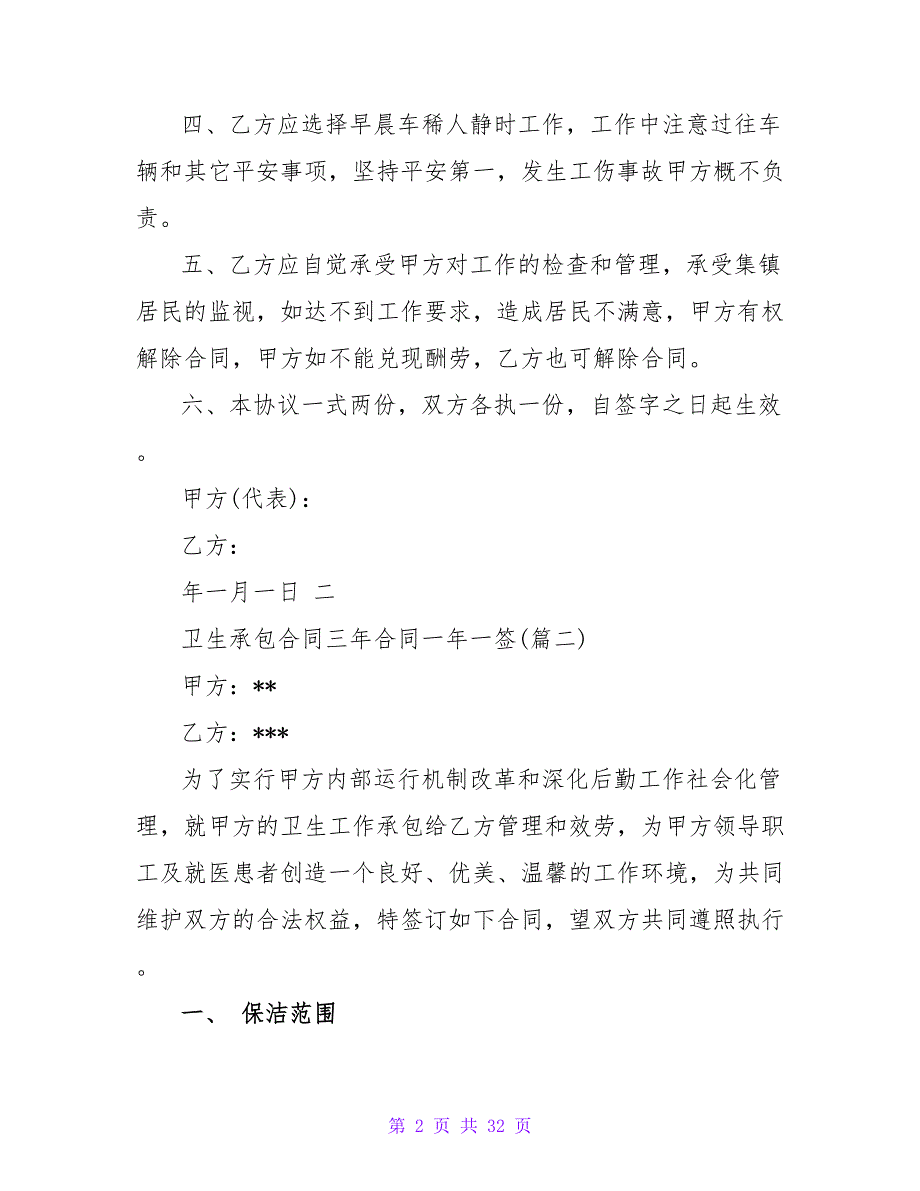 四、乙方应选择早晨车稀人静时工作，工作中注意过往车
辆和其它平安事项，坚持平安第一，发生工伤事故甲方概不负
责。
五、乙方应自觉承受甲方对工作的检查和管理，承受集镇
居民的监视，如达不到工作要求，造成居民不满意，甲方有权
解除合同，甲方如不能兑现酬劳，乙方也可解除合同。
六、本协议一式两份，双方各执一份，自签字之日起生效
。
甲方(代表)：
乙方：
年一月一日 二
卫生承包合同三年合同一年一签(篇二)
甲方：**
乙方：***
为了实行甲方内部运行机制改革和深化后勤工作社会化管
理，就甲方的卫生工作承包给乙方管理和效劳，为甲方领导职
工及就医患者创造一个良好、优美、温馨的工作环境，为共同
维护双方的合法权益，特签订如下合同，望双方共同遵照执行
。
一、 保洁范围
第 2 页 共 32 页